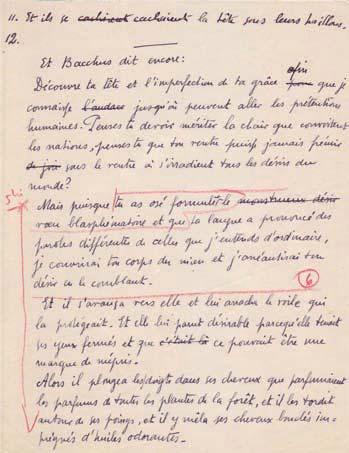 11. Et ils se cachèrent cachaient la tête sous leurs haillons.
12.
Et Bacchus dit encore:
Découvre ta tête et l'imperfection de ta grâce pour afin que je
connaisse l'audace jusqu'où peuvent aller les prétentions
humaines. Penses-tu devoir mériter la chair que convoitent
les nations, penses-tu que ton ventre puisse jamais frémir
de joie sous le ventre où s'irradient tous les désirs du
monde?
Mais puisque tu as osé formuler le monstrueux désir
vœu blasphématoire et que ta langue a prononcé des
paroles différentes de celles que j'entends d'ordinaire,
je couvrirai ton corps du mien et j'anéantirai ton
désir en le comblant.
6
Et il s'avança vers elle et lui arracha le voile qui
la protégeait. Et elle lui parut désirable parcequ'elle tenait
ses yeux fermés et que c'était là ce pouvait être une
marque de mépris.
Alors il plongea les doigts dans ses cheveux que parfumaient
les parfums de toutes les plantes de la forêt, et il les tordit
autour de ses poings, et il y mêla ses cheveux bouclés im-
prégnés d'huiles odorantes.